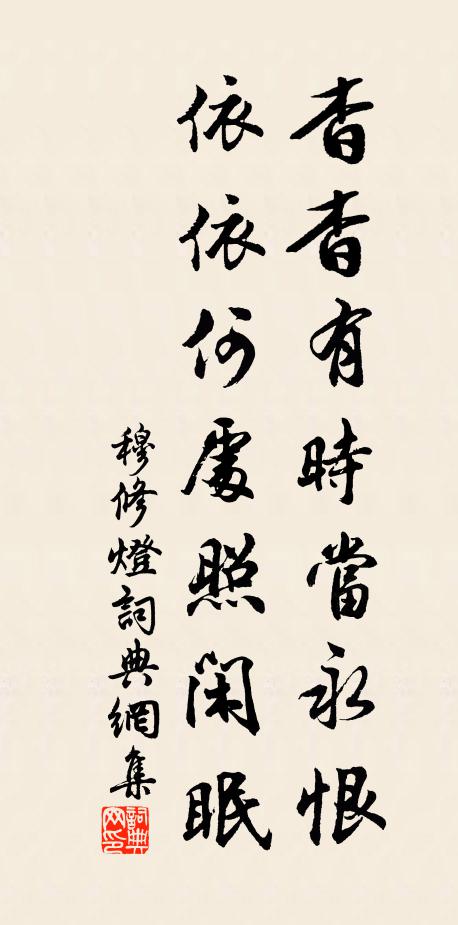 杳杳有時當永恨
依依何處照閑眠
穆修燈詞典網集
詞典网印